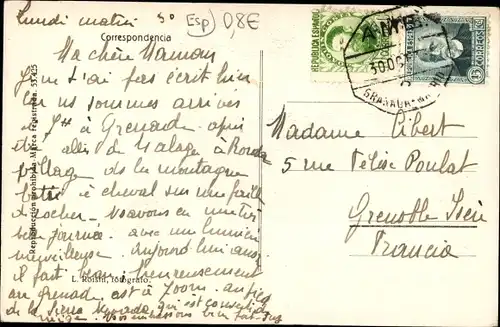 Lundi matin 30
Esp 0,8€
Correspondencia
Ma chère Maman
Je n'ai pas écrit hier
nous sommes arrivés
à Grenade après
être allés de Malaga à Ronda
village de la montagne
bâti à cheval sur une faille
de rocher. Nous avons eu une très
belle journée avec une lumière
merveilleuse. Aujourd'hui aussi
il fait beau. Heureusement
car Grenade est à 700m au pied
de la Sierra Nevada qui est couverte de
neige
Reproducción prohibida. Marca registrada. 53.425
L. Roisin, fotógrafo.
REPUBLICA ESPAÑOLA
CORREOS
30 OCT
GRANADA
Madame Cibert
5 rue Félix Poulat
Grenoble Isère
Francia